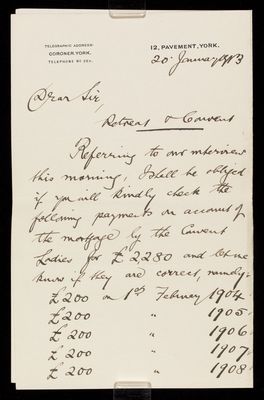 TELEGRAPHIC ADDRESS:
CORONER, YORK.
TELEPHONE Nº
12, PAVEMENT, YORK.
20 January 1913
Dear Sir,
Retreat & Convent
Referring to our interview
this morning, I shall be obliged
if you will kindly check the
following payments on account of
the mortgage by the Convent
Ladies for £2280 and let me
know if they are correct, namely:
£200 on 1st February 1904
£200 " 1905
£200 " 1906
£200 " 1907
£200 " 1908